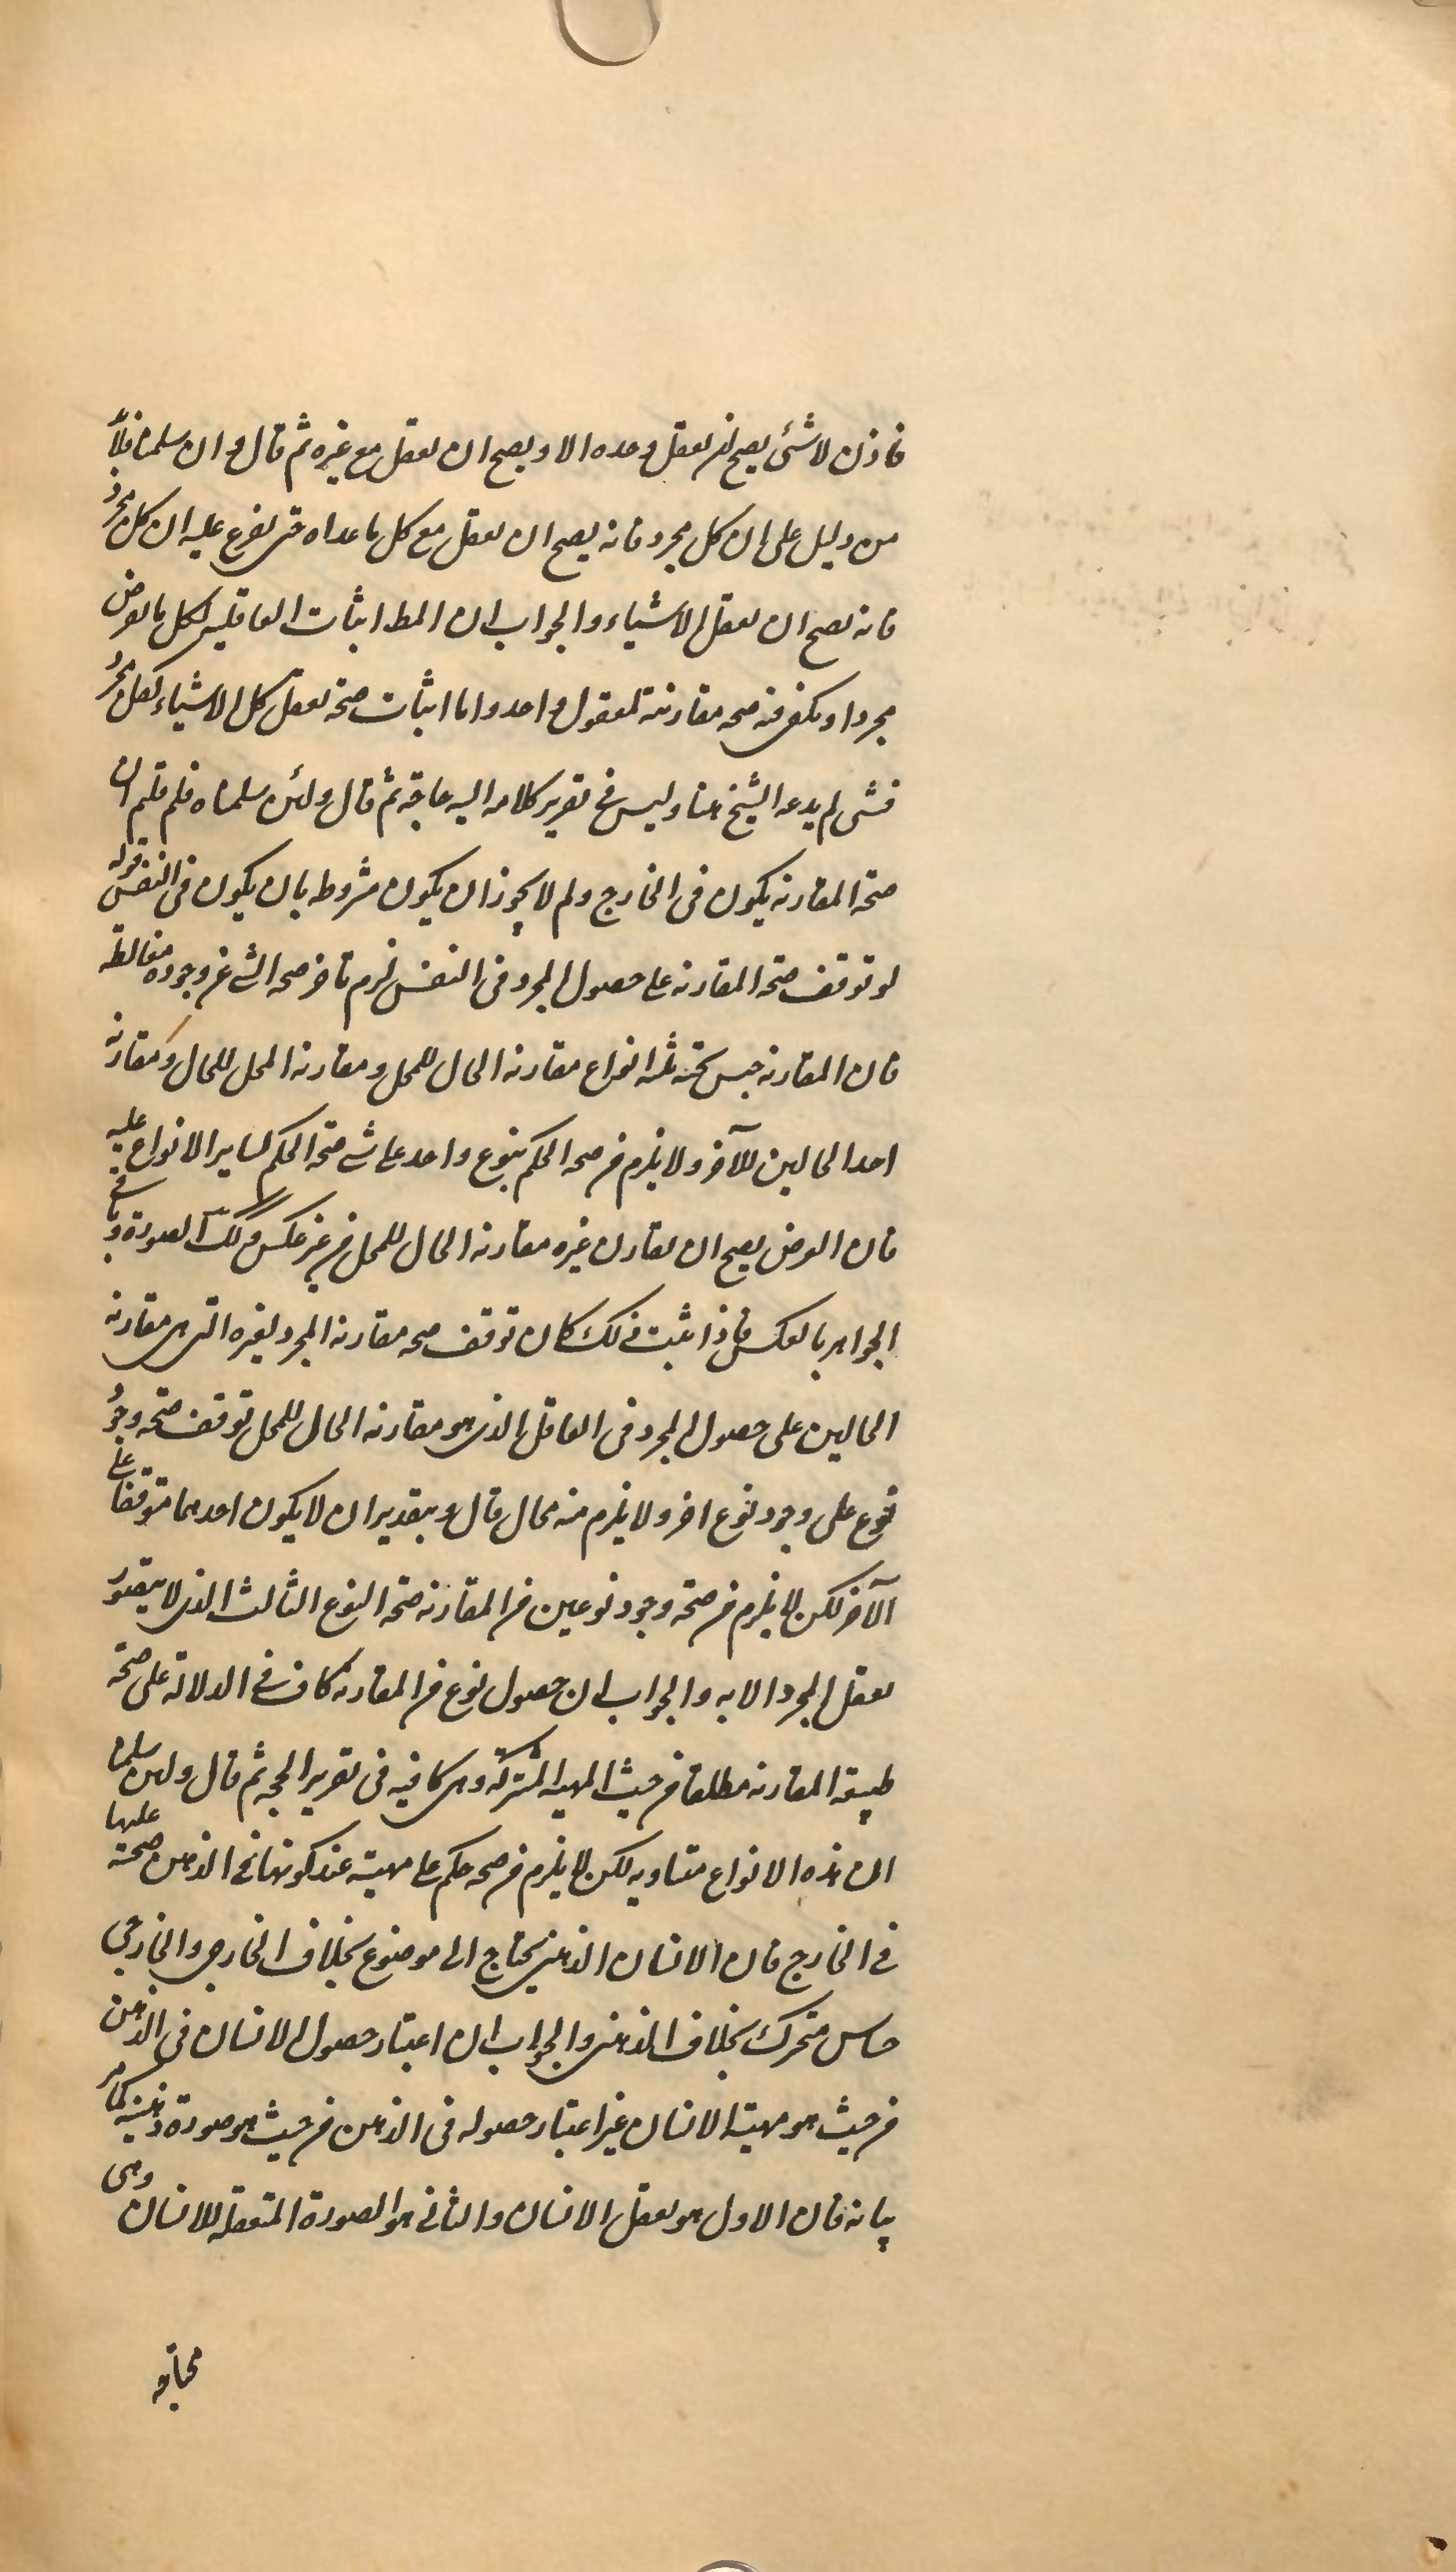 فاذن لا شئ يصح ان يعقل وحده الا و يصح ان يعقل مع غيره ثم قال و ان سلمنا فلا بد
من دليل على ان كل مجرد فانه يصح ان يعقل مع كل ما عداه حتى يفرع عليه ان كل مجرد
فانه يصح ان يعقل الاشياء و الجواب ان المط اثبات العاقلية لكل ما يفرض
مجردا و يكفى فيه صحه مقارنته لمعقول واحد و اما اثبات صحة تعقل كل الاشياء لكل مجرد
فشى لم يدعه الشيخ هنا و ليس فى تقرير كلامه اليه حاجة ثم قال و لئن سلمناه فلم قلتم ان
صحة المقارنه يكون فى الخارج و لم لا يجوز ان يكون مشروطه بان يكون فى النفس قوله
لو توقف صحة المقارنه على حصول المجرد فى النفس لزم تاخر صحه الشئ عن وجوده مغالطه
فان المقارنه جنس تحته ثلثه انواع مقارنه الحال للمحل و مقارنه المحل للحال و مقارنه
احد الحالين للآخر و لا يلزم من صحه الحكم بنوع واحد على شئ صحة الحكم لساير الانواع عليه
فان العرض يصح ان يقارن غيره مقارنه الحال للمحل من غير عكس و كك الصورة و باقى
الجواهر بالعكس فاذا ثبت ذلك كان توقف صحه مقارنه المجرد لغيره التى هى مقارنه
الحالين على حصول المجرد فى العاقل الذى هو مقارنه الحال للمحل توقف صحه وجود
نوع على وجود نوع اخر و لا يلزم منه محال قال و بتقدير ان لا يكون احدهما متوقفا على
الآخر لكن لا يلزم من صحة وجود نوعين من المقارنه صحة النوع الثالث الذى لا يتصور
تعقل المجرد الا به و الجواب ان حصول نوع من المقارنه كاف فى الدلالة على صحة
طبيعة المقارنه مطلقا من حيث المهيه المشتركة و هى كافيه فى تقرير الحجه ثم قال و لئن سلمنا
ان هذه الانواع متساويه لكن لا يلزم من صحه حكم على مهية عند كونها فى الذهن صحته عليها
فى الخارج فان الانسان الذهنى يحتاج الى موضوع بخلاف الخارجى و الخارجى
حساس متحرك بخلاف الذهنى و الجواب ان اعتبار حصول الانسان فى الذهن
من حيث هو مهية الانسان غير اعتبار حصوله فى الذهن من حيث هو صورة ذهنيه كما مر
بيانه فان الاول هو تعقل الانسان و الثانى هو الصورة المتعقله للانسان و هى
محتاجة